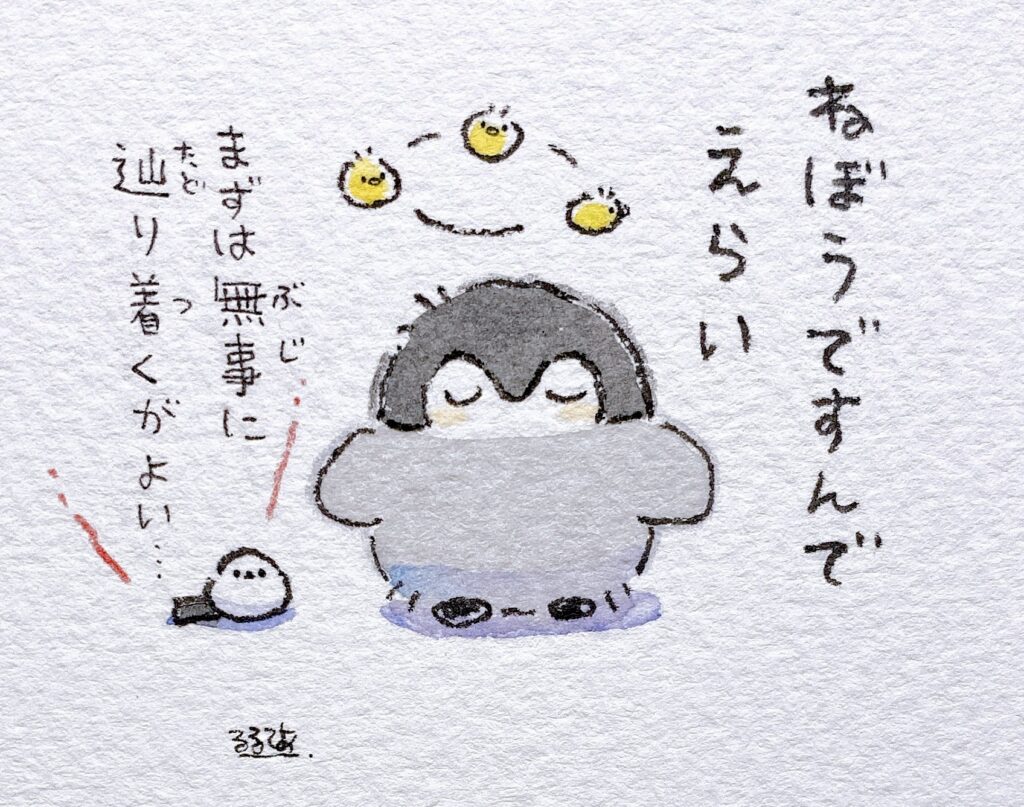 ねぼうですんで
えらい
まずは無事に
ぶじ
辿り着くがよい…
たど
つ
るるてあ.